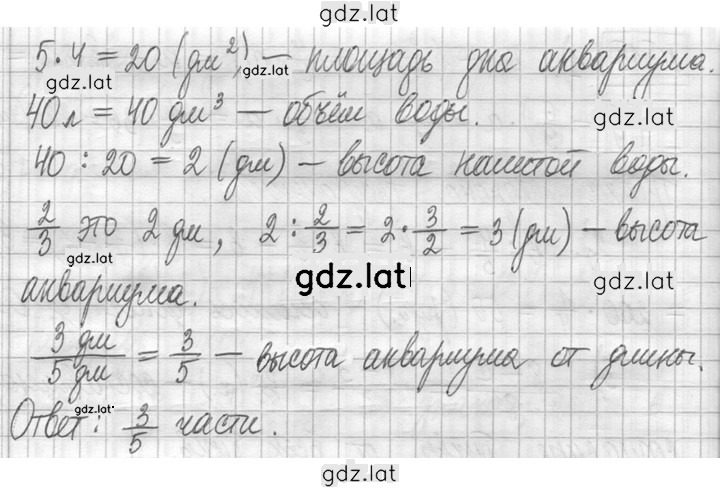 gdz.lat
5 · 4 = 20 (дм²) — площадь дна аквариума.
gdz.lat gdz.lat
40 л = 40 дм³ — объём воды.
gdz.lat
40 : 20 = 2 (дм) — высота налитой воды.
2/3 это 2 дм, 2 : 2/3 = 2 · 3/2 = 3 (дм) — высота
gdz.lat gdz.lat gdz.lat
аквариума.
3 дм/5 дм = 3/5 — высота аквариума от длины.
gdz.lat
Ответ: 3/5 части.
gdz.lat